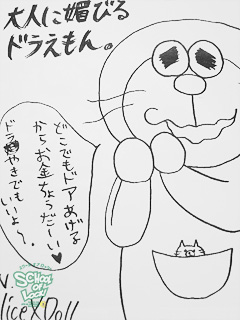 大人に媚びる
ドラえもん。
どこでもドアあげる
からお金ちょうだーい♥
ドラやきでもいいよ〜。
SCHOOL OF LOCK!
lice X Doll